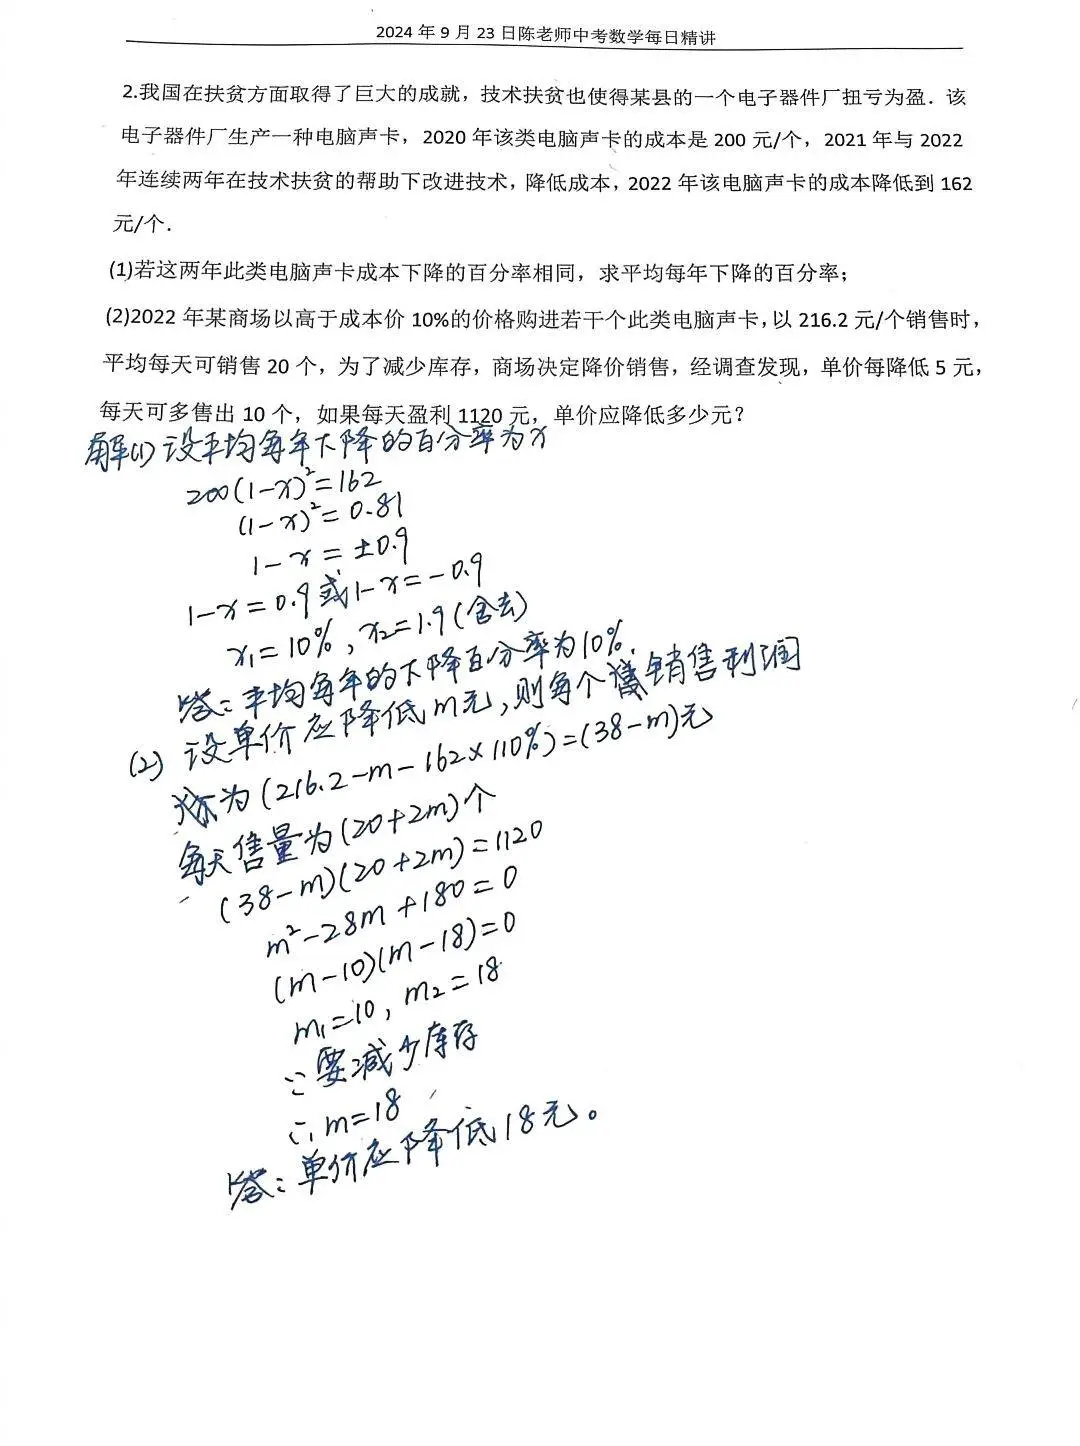 2024年9月23日陈老师中考数学每日精讲
2.我国在扶贫方面取得了巨大的成就，技术扶贫也使得某县的一个电子器件厂扭亏为盈．该
电子器件厂生产一种电脑声卡，2020年该类电脑声卡的成本是200元/个，2021年与2022
年连续两年在技术扶贫的帮助下改进技术，降低成本，2022年该电脑声卡的成本降低到162
元/个．
(1)若这两年此类电脑声卡成本下降的百分率相同，求平均每年下降的百分率；
(2)2022年某商场以高于成本价10%的价格购进若干个此类电脑声卡，以216.2元/个销售时，
平均每天可销售20个，为了减少库存，商场决定降价销售，经调查发现，单价每降低5元，
每天可多售出10个，如果每天盈利1120元，单价应降低多少元？
解(1)设平均每年下降的百分率为x
200(1-x)²=162
(1-x)²=0.81
1-x=±0.9
1-x=0.9或1-x=-0.9
x₁=10%，x₂=1.9(舍去)
答：平均每年的下降百分率为10%.
(2)设单价应降低m元，则每个销售利润
为(216.2-m-162×110%)=(38-m)元
每天售量为(20+2m)个
(38-m)(20+2m)=1120
m²-28m+180=0
(m-10)(m-18)=0
m₁=10，m₂=18
∵要减少库存
∴m=18
答：单价应降低18元。